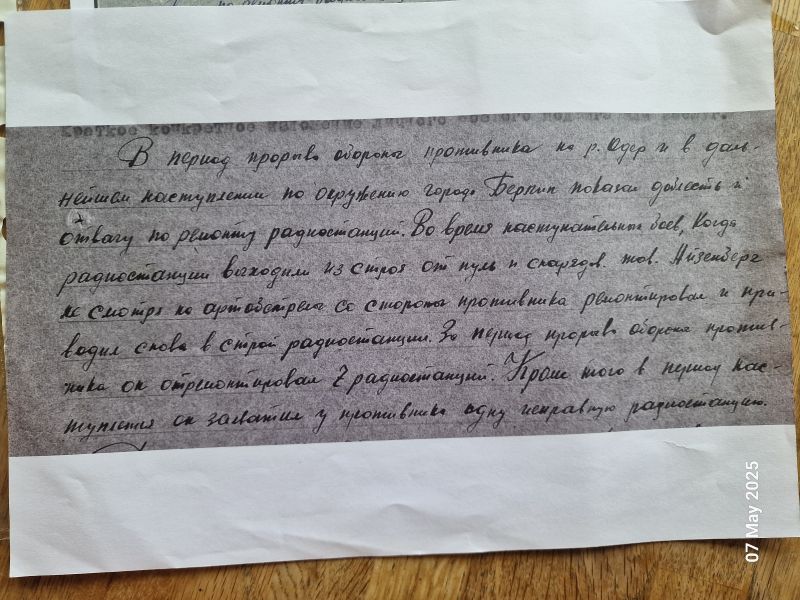 Краткое конкретное изложение личного боевого подвига
В период прорыва обороны противника на р. Одер и в даль-
нейшем наступлении по окружению города Берлин показал доблесть и
отвагу по ремонту радиостанций. Во время наступательных боев, когда
радиостанции выходили из строя от пуль и снарядов. тов. Айзенберг
не смотря на артобстрелы со стороны противника ремонтировал и при-
водил снова в строй радиостанции. За период прорыва обороны против-
ника он отремонтировал 7 радиостанций. Кроме того в период нас-
тупления он захватил у противника одну исправную радиостанцию.
07 May 2025